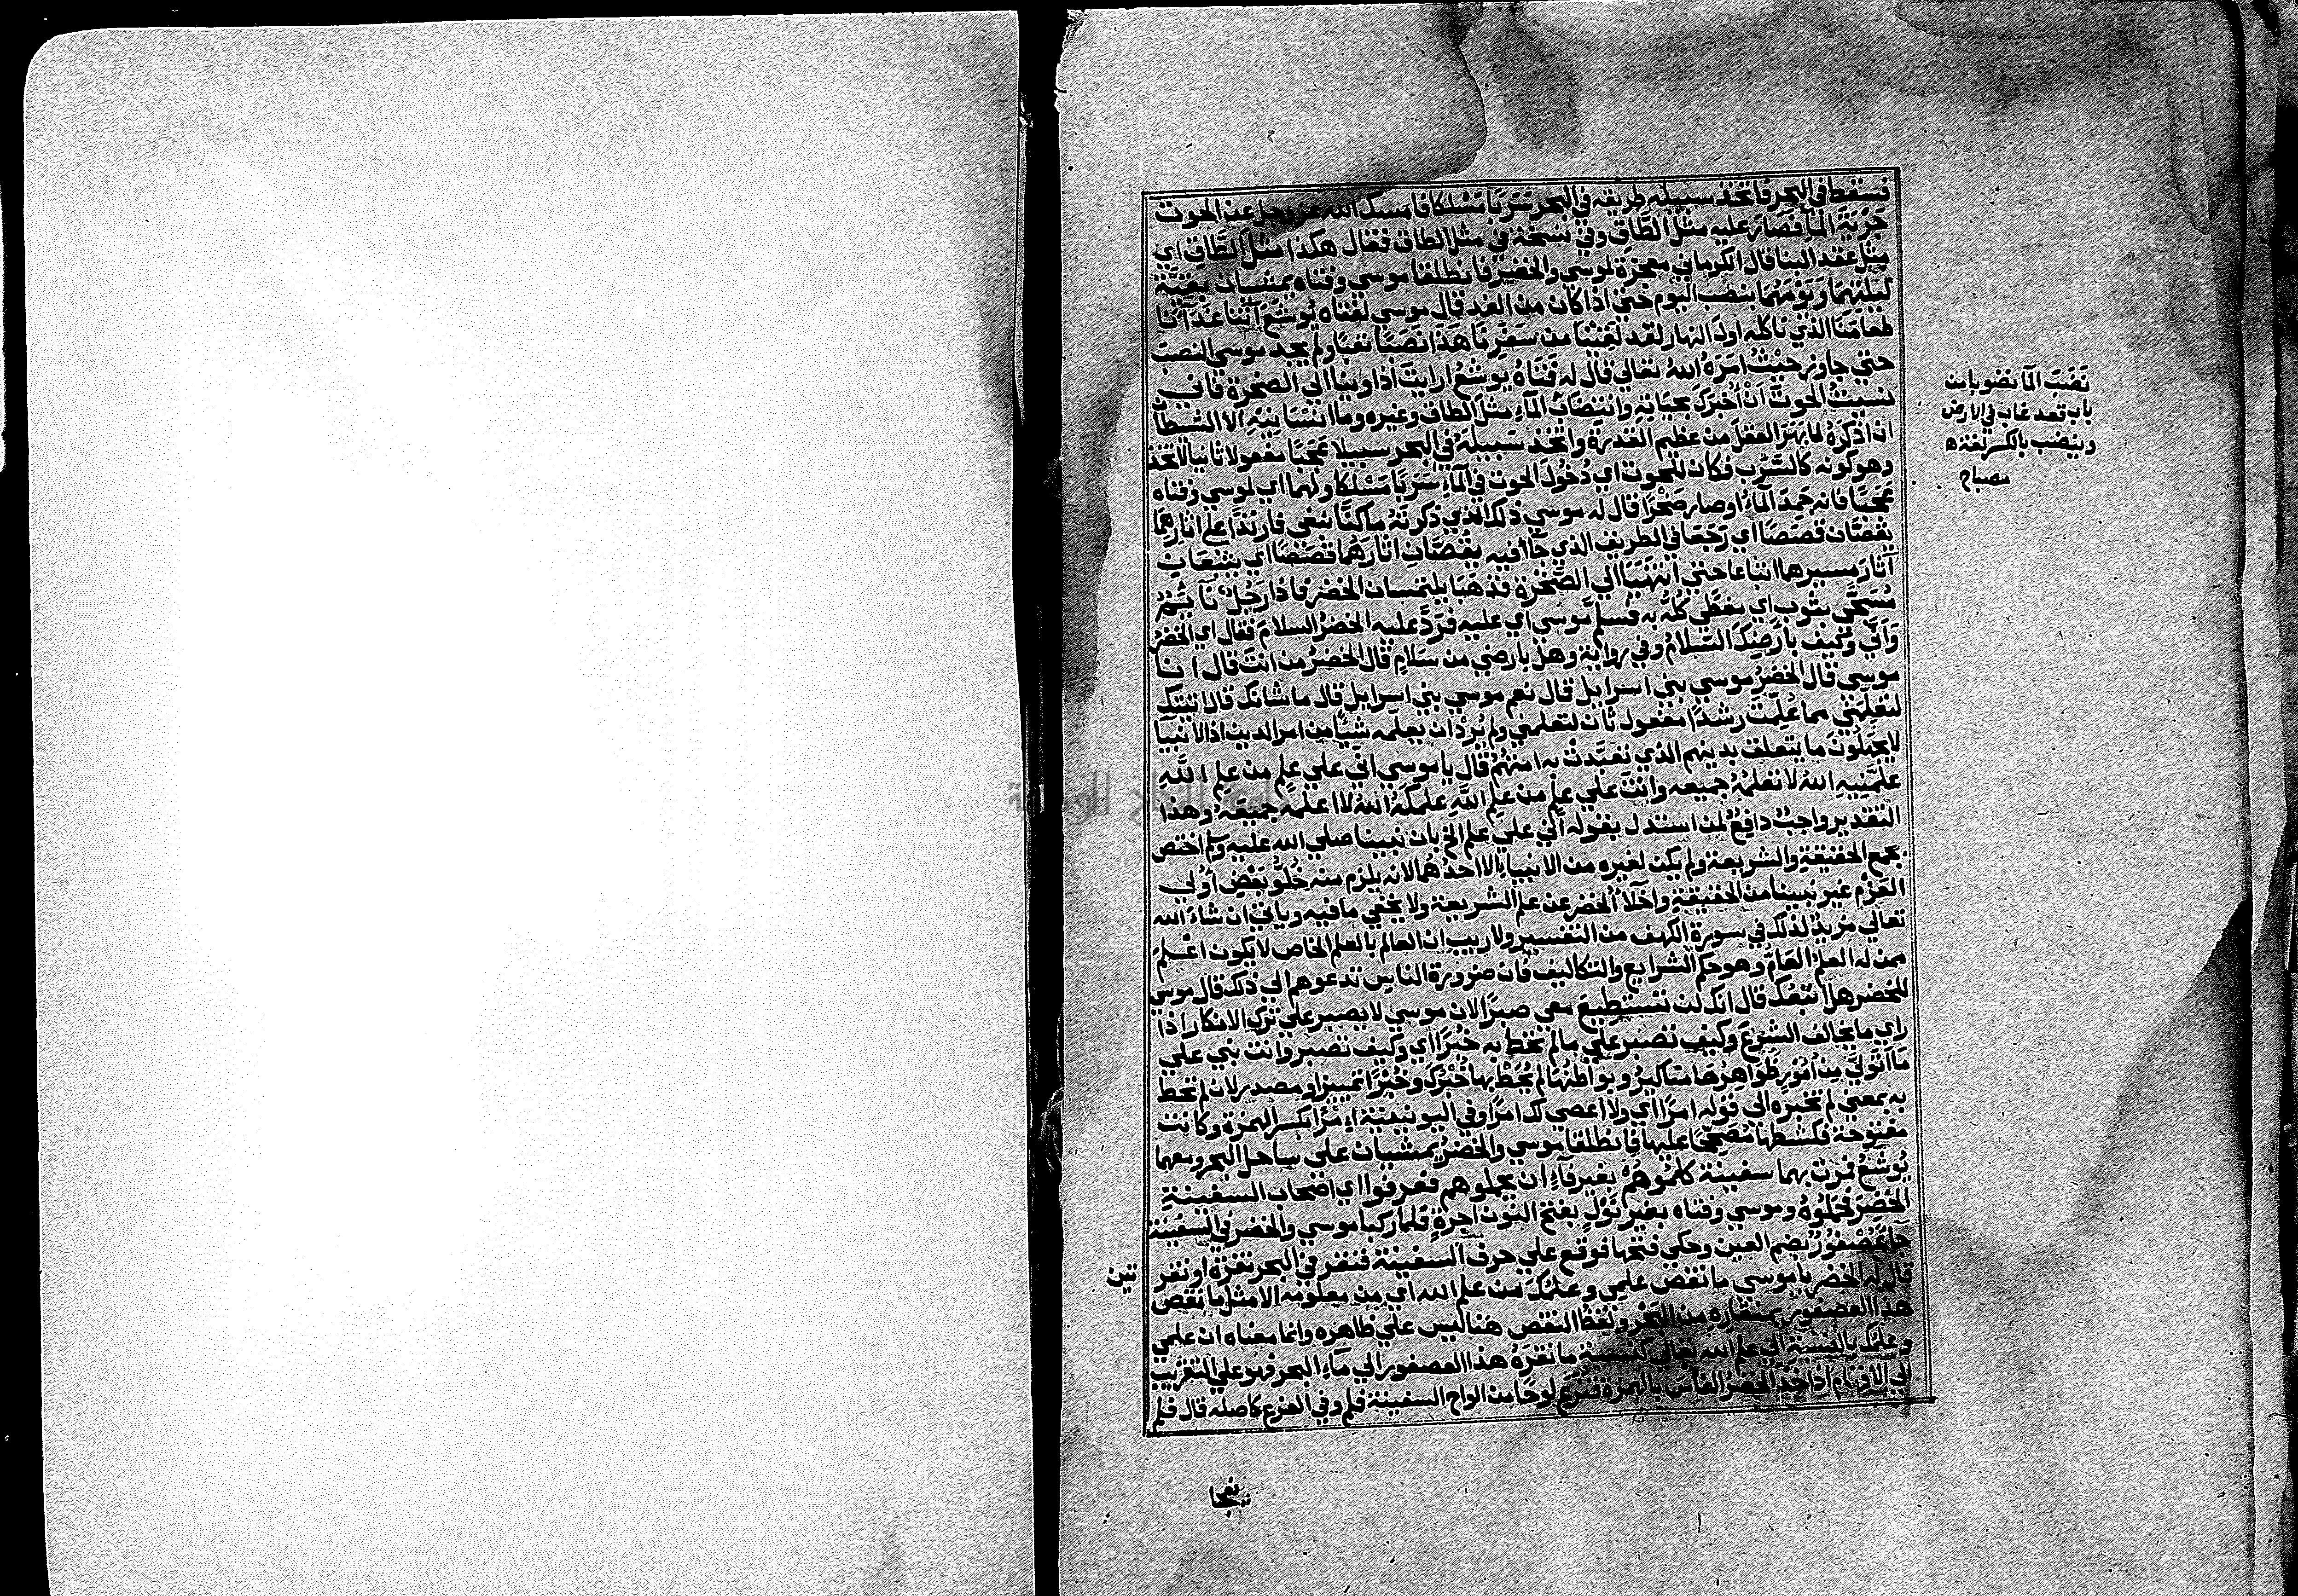 فسقط في البحر فاتخذ سبيله طريقه في البحر سَرَبًا مَسْلكا فامسك الله عز وجل عن الحوت
جَرْيَةَ الما فَصَار عليه مثل الطَّاقِ وفي نسخة في مثل الطاق فقال هكذا مثل الطَّاقِ اي
مِثلَ عقد البنا قال الكرماني معجزة لموسي والخضر فانطلقا موسي وفتاه يمشيان بَقيَّة
لَيلتِهمَا وَيَوْمَهُمَا بنصب اليوم حتي اذا كان من الغد قال موسي لفتاه يُوشَعْ آتنَا غدَآنَا
طعامَنَا الذي ناكله اول النهار لقد لقينَا من سَفرِنَا هَذَا نَصَبًا تعبًا ولم يجد موسي النصب
حتي جاوز حيْث امَرَهُ اللهُ تعالي قال له فتَاهُ يُوشعُ ارايت اذ اوينا الي الصخرة فاني
نسيتُ الحوت اَنْ اُخْبرَكَ بحيَاتِه وانتصَاب المآءِ مثل الطاق وغيره وما انسَانِيْهِ الا الشيطان
ان اذكرَهُ لما بَهَرَ العقلَ من عظيم القدرة واتخذ سَبيلَهُ في البحر سبيلا عَجَبًا مفعولا ثانيا لاتخذ
وهو كونه كالسَّرَب فكان للحوت اي دُخُولَ الحوت في المآءِ سَرَبًا مَسْلكا ولهما اي لموسي وفتاه
عَجَبًا فانه جَمِدَ المآءُ او صار صَخْرًا قال له موسي ذلك الذي ذكرتَهُ ما كُنَّا نَبْغي فارتدَّا علي آثارِهمَا
يَقصَّان قصَصًا اي رَجَعَا في الطريق الذي جَآا فيه يقُصَّان اثارَهُمَا قصَصًا اي يَتبعَان
آثار مسيرهما اتباعا حتي انتهَيَا الي الصَّخرة فذهَبَا يلتمسان الخضرَ فاذا رَجُلٌ نآئم
مُسَجًّى بثوب اي يغطّي كُلُّه به فسلّم مُوسي اي عليه فرَدَّ عليه الخضرُ السلامَ فقال اي الخضر
وَاَنَّي وكيف بارضك السَّلامُ وفي رواية وهل بارضي من سَلام قال الخضرُ من انتَ قال انا
موسي قال الخضرُ موسي بني اسرايل قال نعم موسي بني اسرايل قال ما شانك قال اتيتك
لتُعَلّمَني مما عُلّمْتَ رشدًا مفعول ثان لتعلمني ولم يُرِدْ ان يعلّمَه شيًا من امر الدين اذ الانبيآ
لا يجهلونَ ما يتعلق بدينهم الذي تعبَّدتْ به امتُهُم قال يا موسي اني علي علم من علم اللَّهِ
علّمَنيهِ اللهُ لا تعلمُهُ جميعه وانتَ علي علم من علم اللهِ علّمكهُ اللهُ لا اعلمهُ جميعَهُ وهذا
التقدير واجبٌ دافعٌ لمن استدل بقوله اني علي علم الخ بان نبينا صلي الله عليه وسلم اختص
بجمع الحقيقةِ والشريعة ولم يكن لغيره من الانبياء الا احدهُمَا لانه يلزم منه خُلُوُّ بَعْضِ اُولي
العَزْم غير نبينا من الحقيقة واخلآءُ الخضر عن علم الشريعة ولا يخفي ما فيه وياتي ان شآءَ الله
تعالي مزيدٌ لذلك في سورة الكهف من التفسير ولا ريب ان العالم بالعلم الخاص لا يكون اعْلم
ممن له العلمُ العَامُّ وهو حكم الشرايع والتكاليف فان ضرورة الناس تدعوهم الي ذلك قال موسي
للخضر هل اتبعُك قال انك لن تسْتطِيعَ معي صبرًا لان موسي لا يصبر علي ترك الانكار اذا
راي ما يخالف الشرْعَ وكيف تصبر علي ما لم تحط به خُبْرًا اي وكيف تصبر وانت نبي علي
مَا اَتوَلَّي مِن اُمُورٍ ظَوَاهِرُهَا مناكيرُ وبواطنُهَا لم يُحَطْ بها خُبْرُكَ وخُبْرًا تمييزٌ او مصدر لان لم تحط
به بمعني لم تخبره الي قوله امرًا اي ولا اعصي لك امرًا وفي اليونينية اِمْرًا بكسر الهمزة وكانت
مفتوحة فكشطها مُصَحّحًا عليها فانطلقا موسي والخضرُ يمشيان علي ساحل البحر ومعهما
يُوشعُ فمرّت بهما سفينة كلمُوهُم بغير فآءٍ ان يحملوهم فعرفوا اي اصْحاب السفينةِ
الخضِرَ فحَمَلُوهُ وموسي وفتاه بغير نَوْلٍ بفتح النون اجرةٍ فلما ركبا موسي والخضر في السفينة
جآءَ عُصْفورٌ بضم العين وحكي فتحها فوقع علي حرف السفينة فنقر في البحر نقرةً او نقر
تين
قال له الخضر يا موسي ما نقص علمي وعلمُكَ من علم الله اي من معلومه الا مثل ما نقص
هذا العصفور بمنقاره من البَحْر ولفظُ النقص هنا ليس علي ظاهره وانما معناه ان علمي
وعلمَك بالنسبة الي علم الله تعالي كنسبة ما نقرَهُ هذا العصفور الي مآءِ البحر فهو علي التقريب
الي الافهام اذ اخَذَ الخضرُ الفاسَ بالهمزة فنَزَع لوحًا من الواح السفينة فلم وفي الفرع كاصله قال فلم
نَضَبَ المآ نضوبا من
باب قعد غاب في الارض
وينضب بالكسر لغة ه
مصباح